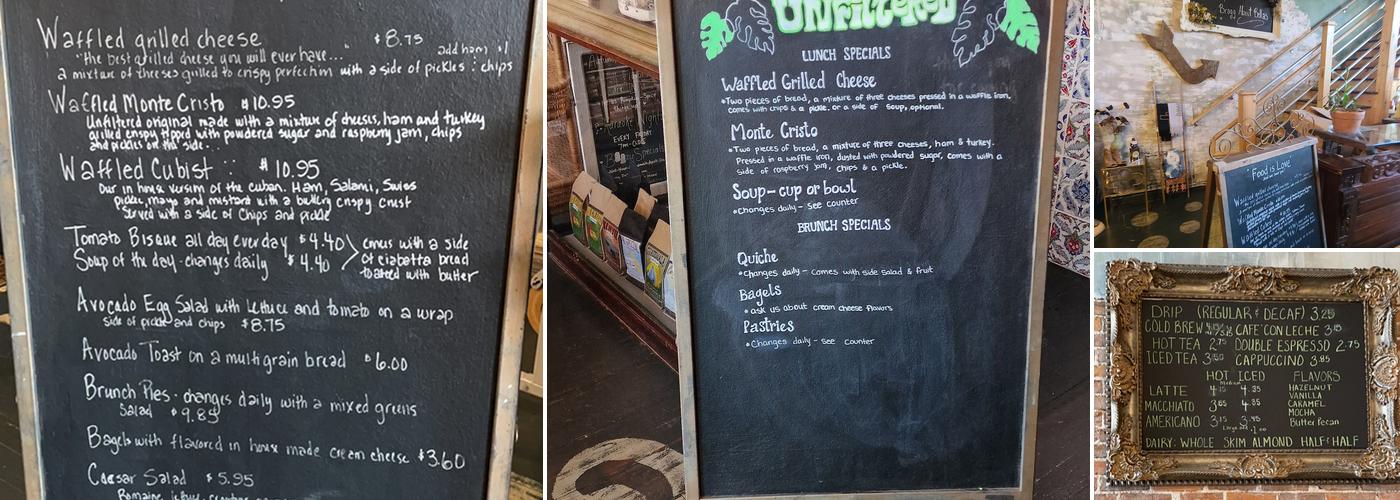 Waffled grilled cheese $8.75
"the best grilled cheese you will ever have..." add ham $1
a mixture of cheeses grilled to crispy perfection with a side of pickles & chips
Waffled Monte Cristo $10.95
Unfiltered original made with a mixture of cheeses, ham and turkey
grilled crispy topped with powdered sugar and raspberry jam, chips
and pickles on the side...
Waffled Cubist $10.95
Our in house version of the cuban. Ham, Salami, Swiss
pickle, mayo and mustard with a buttery crispy crust
Served with a side of Chips and pickle
Tomato Bisque all day every day $4.40
Soup of the day - changes daily $4.40
comes with a side
of ciabatta bread
toasted with butter
Avocado Egg Salad with Lettuce and tomato on a wrap
side of pickle and chips $8.75
Avocado Toast on a multigrain bread $6.00
Brunch Pies - changes daily with a mixed greens
Salad $9.85
Bagels with flavored in house made cream cheese $3.60
Caesar Salad $5.95
Unfiltered
LUNCH SPECIALS
Waffled Grilled Cheese
•Two pieces of bread, a mixture of three cheeses pressed in a waffle iron,
comes with chips & a pickle. or a side of Soup, optional.
Monte Cristo
•Two pieces of bread, a mixture of three cheeses, ham & turkey.
Pressed in a waffle iron, dusted with powdered sugar, comes with a
side of raspberry jam, chips & a pickle.
Soup-cup or bowl
•Changes daily - See counter
BRUNCH SPECIALS
Quiche
•Changes daily - comes with side salad & fruit
Bagels
• ask us about cream cheese flavors
Pastries
•Changes daily - See counter
"Food is Love"
Waffled grilled cheese
DRIP (REGULAR & DECAF) 3.25
COLD BREW CAFE CON LECHE
HOT TEA 2.75 DOUBLE ESPRESSO 2.75
ICED TEA CAPPUCCINO 3.85
HOT ICED FLAVORS
LATTE 4.35 HAZELNUT
VANILLA
MACCHIATO 3.85 4.85 CARAMEL
MOCHA
AMERICANO 3.15 Butter Pecan
DAIRY: WHOLE SKIM ALMOND HALF & HALF